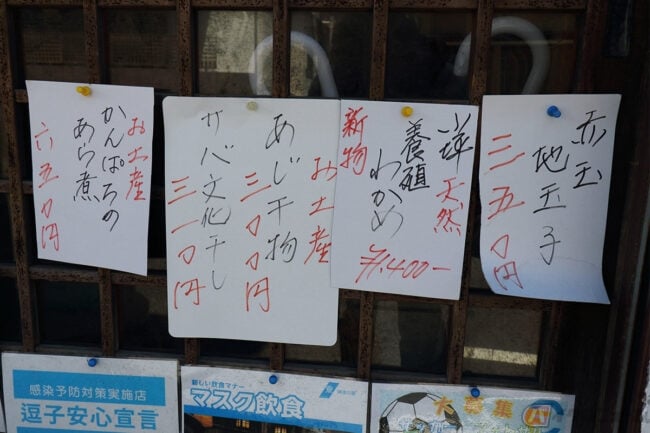 お土産
かんぱちの
あら煮
六五〇円
お土産
あじ干物
三〇〇円
サバ文化干し
三一〇円
小坪 天然
養殖
わかめ
新物
¥1,400-
赤玉
地玉子
三五〇円
感染予防対策実施店
逗子安心宣言
新しい飲食マナー
マスク飲食
大募集